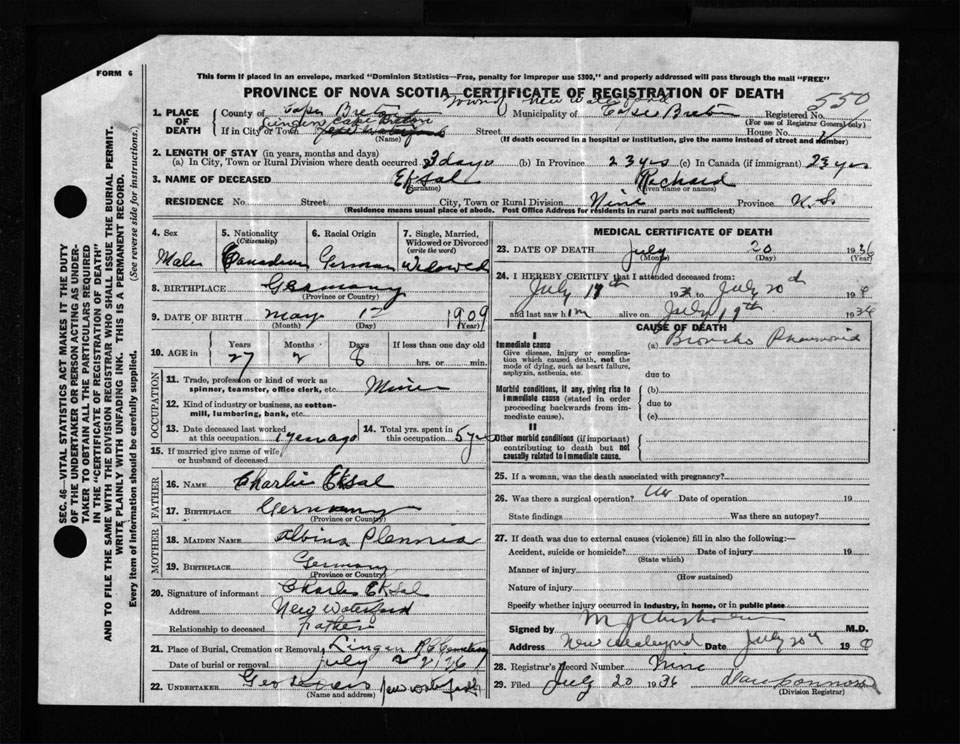 FORM 6
This form if placed in an envelope, marked "Dominion Statistics—Free, penalty for improper use $300," and properly addressed will pass through the mail "FREE"
PROVINCE OF NOVA SCOTIA—CERTIFICATE OF REGISTRATION OF DEATH
Town of New Waterford
550
1. PLACE OF DEATH
County of Cape Breton
Municipality of Cape Breton
Registered No.
(For use of Registrar General only)
If in City or Town
(Name)
Street
House No.
(If death occurred in a hospital or institution, give the name instead of street and number)
2. LENGTH OF STAY (in years, months and days)
(a) In City, Town or Rural Division where death occurred 3 days (b) In Province 23 yrs (c) In Canada (if immigrant) 23 yrs
3. NAME OF DECEASED Eksal Richard
(Surname) (Given name or names)
RESIDENCE No. Street City, Town or Rural Division Province N.S.
(Residence means usual place of abode. Post Office Address for residents in rural parts not sufficient)
4. Sex
Male
5. Nationality
(Citizenship)
Canadian
6. Racial Origin
German
7. Single, Married, Widowed or Divorced
(write the word)
Widowed
8. BIRTHPLACE Germany
(Province or Country)
9. DATE OF BIRTH May 12 1909
(Month) (Day) (Year)
10. AGE in
Years Months Days If less than one day old
27 2 8 hrs. or min.
OCCUPATION
11. Trade, profession or kind of work as spinner, teamster, office clerk, etc. Miner
12. Kind of industry or business, as cotton-mill, lumbering, bank, etc.
13. Date deceased last worked at this occupation 1 year ago
14. Total yrs. spent in this occupation 5 yrs
15. If married give name of wife or husband of deceased
FATHER
16. NAME Charlie Eksal
17. BIRTHPLACE Germany
(Province or Country)
MOTHER
18. MAIDEN NAME Albina
19. BIRTHPLACE Germany
(Province or Country)
20. Signature of informant Charles Eksal
Address New Waterford
Relationship to deceased Father
21. Place of Burial, Cremation or Removal Cemetery
Date of burial or removal July 22/36
22. UNDERTAKER Geo New Waterford
(Name and address)
MEDICAL CERTIFICATE OF DEATH
23. DATE OF DEATH July 20 1936
(Month) (Day) (Year)
24. I HEREBY CERTIFY that I attended deceased from:
July 19th to July 20th 19
and last saw him alive on July 19th 1936
CAUSE OF DEATH
I
Immediate cause (a) Broncho Pneumonia
Give disease, injury or complication which caused death, not the mode of dying, such as heart failure, asphyxia, asthenia, etc.
due to
Morbid conditions, if any, giving rise to immediate cause (stated in order proceeding backwards from immediate cause).
(b)
due to
(c)
II
Other morbid conditions (if important) contributing to death but not causally related to immediate cause.
25. If a woman, was the death associated with pregnancy?
26. Was there a surgical operation? No Date of operation 19
State findings Was there an autopsy?
27. If death was due to external causes (violence) fill in also the following:—
Accident, suicide or homicide? Date of injury 19
(State which)
Manner of injury
(How sustained)
Nature of injury
Specify whether injury occurred in industry, in home, or in public place
Signed by M.D.
Address New Waterford Date July 20th 19
28. Registrar's Record Number
29. Filed July 20 1936
(Division Registrar)
SEC. 46—VITAL STATISTICS ACT MAKES IT THE DUTY
OF THE UNDERTAKER OR PERSON ACTING AS UNDERTAKER TO OBTAIN ALL THE PARTICULARS REQUIRED
IN THE "CERTIFICATE OF REGISTRATION OF DEATH"
AND TO FILE THE SAME WITH THE DIVISION REGISTRAR WHO SHALL ISSUE THE BURIAL PERMIT.
WRITE PLAINLY WITH UNFADING INK. THIS IS A PERMANENT RECORD.
Every item of information should be carefully supplied. (See reverse side for instructions.)